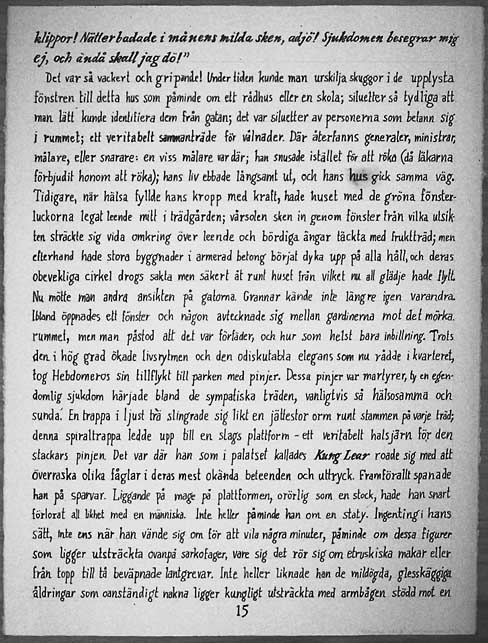 klippor! Nätter badade i månens milda sken, adjö! Sjukdomen besegrar mig
ej, och ändå skall jag dö!”
Det var så vackert och gripande! Under tiden kunde man urskilja skuggor i de upplysta
fönstren till detta hus som påminde om ett rådhus eller en skola; siluetter så tydliga att
man lätt kunde identifiera dem från gatan; det var siluetter av personerna som befann sig
i rummet; ett veritabelt sammanträde för vålnader. Där återfanns generaler, ministrar,
målare, eller snarare: en viss målare var där; han snusade istället för att röka (då läkarna
förbjudit honom att röka); hans liv ebbade långsamt ut, och hans hus gick samma väg.
Tidigare, när hälsa fyllde hans kropp med kraft, hade huset med de gröna fönster-
luckorna legat leende mitt i trädgården; vårsolen sken in genom fönster från vilka utsik-
ten sträckte sig vida omkring över leende och bördiga ängar täckta med fruktträd; men
efterhand hade stora byggnader i armerad betong börjat dyka upp på alla håll, och deras
obevekliga cirkel drogs sakta men säkert åt runt huset från vilket nu all glädje hade flytt.
Nu mötte man andra ansikten på gatorna. Grannar kände inte längre igen varandra.
Ibland öppnades ett fönster och någon avtecknade sig mellan gardinerna mot det mörka
rummet, men man påstod att det var förfäder, och hur som helst bara inbillning. Trots
den i hög grad ökade livsrytmen och den odiskutabla elegans som nu rådde i kvarteret,
tog Hebdomeros sin tillflykt till parken med pinjer. Dessa pinjer var martyrer, ty en egen-
domlig sjukdom härjade bland de sympatiska träden, vanligtvis så hälsosamma och
sunda. En trappa i ljust trä slingrade sig likt en jättestor orm runt stammen på varje träd;
denna spiraltrappa ledde upp till en slags plattform – ett veritabelt halsjärn för den
stackars pinjen. Det var där han som i palatset kallades Kung Lear roade sig med att
överraska olika fåglar i deras mest okända beteenden och uttryck. Framförallt spanade
han på sparvar. Liggande på mage på plattformen, orörlig som en stock, hade han snart
förlorat all likhet med en människa. Inte heller påminde han om en staty. Ingenting i hans
sätt, inte ens när han vände sig om för att vila några minuter, påminde om dessa figurer
som ligger utsträckta ovanpå sarkofager, vare sig det rör sig om etruskiska makar eller
från topp till tå beväpnade lantgrevar. Inte heller liknade han de mildögda, glesskäggiga
åldringar som oanständigt nakna ligger kungligt utsträckta med armbågen stödd mot en
15